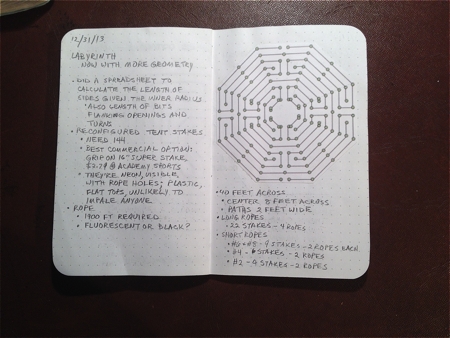 12/31/13
LABYRINTH
NOW WITH MORE GEOMETRY
• DID A SPREADSHEET TO
CALCULATE THE LENGTH OF
SIDES GIVEN THE INNER RADIUS
• ALSO LENGTH OF BITS
FLANKING OPENINGS AND
TURNS
• RECONFIGURED TENT STAKES
• NEED 144
• BEST COMMERCIAL OPTION:
GRIP ON 16" SUPER STAKE,
$2.29 @ ACADEMY SPORTS
• THEY'RE NEON, VISIBLE,
WITH ROPE HOLES; PLASTIC,
FLAT TOPS, UNLIKELY TO
IMPALE ANYONE.
• ROPE
• 1400 FT REQUIRED
• FLUORESCENT OR BLACK?
40 FEET ACROSS
• CENTER 8 FEET ACROSS
• PATHS 2 FEET WIDE
LONG ROPES
• 22 STAKES - 4 ROPES
SHORT ROPES
STAKES - 2 ROPES EACH
STAKES - 2 ROPES
• #2 - 4 STAKES - 2 ROPES